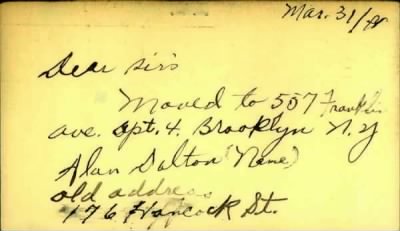 Mar. 31/
Dear Sirs
Moved to 557 Franklin
ave. apt. 4. Brooklyn N.Y
Alan Dalton (Name)
old address
176 Hancock St.